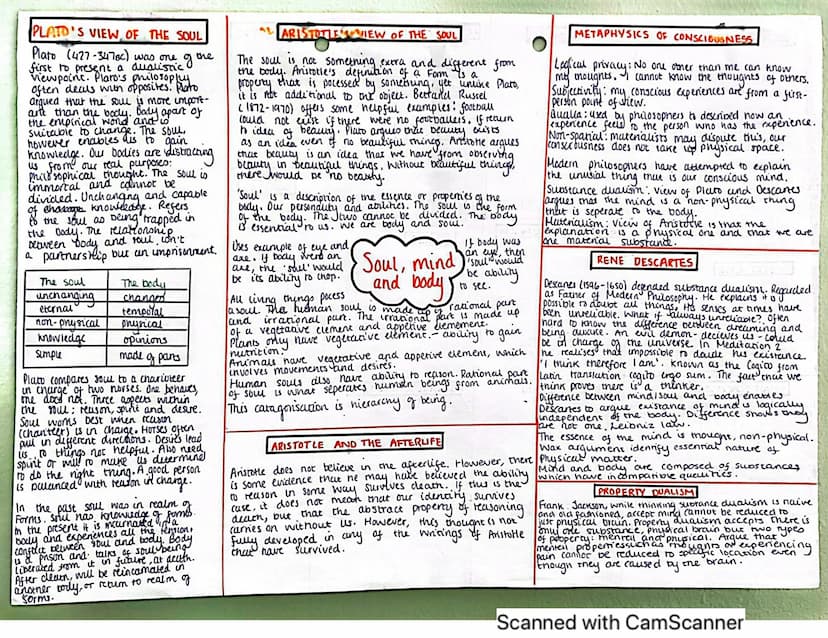 PLATO'S VIEW OF THE SOUL
Plato (427-347BC) was one of the
first to present a dualistic
viewpoint. Plato's philosophy
often deals with opposites. Plato
argued that the soul is more import-
ant than the body. Body apart of
the empirical world and is
suitable to change. The soul
however enables us to gain
knowledge. Our bodies are distracting
us from our real purpose:
philosophical thought. The soul is
immortal and cannot be
divided. Unchanging and capable
of knowledge. Refers
to the soul as being trapped in
the body. The relationship
between body and soul isn't
a partnership but an imprisonment.
The soul | The body
unchanging | changed
eternal | temporal
non-physical | physical
knowledge | opinions
simple | made of parts
Plato compares soul to a charioteer
in charge of two horses. One behaves
one does not. Three aspects within
the soul: reason, spirit and desire.
Soul works best when reason
(charioteer) is in charge. Horses often
pull in different directions. Desires lead
us to things not helpful. Also need
spirit or will to make us determined
to do the right thing. A good person
is balanced with reason in charge.
In the past soul was in realm of
forms. Soul has knowledge of forms.
In the present it is incarnated in a
body and experiences all the tension/
conflict between soul and body. Body
is a prison and talks of soul being
liberated from it in future, at death.
After death, will be reincarnated in
another body, or return to realm of
forms.
ARISTOTLE'S VIEW OF THE SOUL
The soul is not something extra and different from
the body. Aristotle's definition of a Form is a
property that is possessed by something, yet unlike Plato,
it is not additional to the object. Bertrand Russel
(1872-1970) offers some helpful examples: football
could not exist if there were no footballers. If return
to idea of beauty. Plato argues that beauty exists
as an idea even if no beautiful things. Aristotle argues
that beauty is an idea that we have from observing
beauty in beautiful things, without beautiful things,
there would be no beauty.
'Soul' is a description of the essence or properties of the
body. Our personality and abilities. The soul is the form
of the body. The two cannot be divided. The body
is essential to us. We are body and soul.
Uses example of eye and
axe. If body were an
axe, the 'soul' would
be its ability to chop.
If body was
an eye, then
'soul' would
be ability
to see.
Soul, mind
and body
All living things possess
a soul. The human soul is made up of rational part
and irrational part. The irrational part is made up
of a vegetative element and appetive elemement.
Plants only have vegetative element - ability to gain
nutrition.
Animals have vegetative and appetive element, which
involves movements and desires.
Human souls also have ability to reason. Rational part
of soul is what seperates human beings from animals.
This catagorisation is hierarchy of being.
ARISTOTLE AND THE AFTERLIFE
Aristotle does not believe in the afterlife. However, there
is some evidence that he may have believed the ability
to reason in some way survives death. If this is the
case, it does not mean that our identity survives
death, but that the abstract property of reasoning
carries on without us. However, this thought is not
fully developed in any of the writings of Aristotle
that have survived.
METAPHYSICS OF CONSCIOUSNESS
Logical privacy: No one other than me can know
my thoughts, I cannot know the thoughts of others.
Subjectivity: my conscious experiences are from a first-
person point of view.
Qualia: used by philosophers to described how an
experience feels to the person who has the experience.
Non-spatial: materialists may dispute this, our
consciousness does not take up physical space.
Modern philosophers have attempted to explain
the unusual thing that is our conscious mind.
Substance dualism: view of Plato and Descartes
argues that the mind is a non-physical thing
that is seperate to the body.
Materialism: View of Aristotle is that the
explanation is a physical one and that we are
one material substance.
RENE DESCARTES
Descartes (1596-1650) defended substance dualism. Regarded
as Father of Modern Philosophy. He explains it is
possible to doubt all things. His senses at times have
been unreliable. What if always unreliable? Often
hard to know the difference between dreaming and
being awake. An evil demon - decieves us - could
be in charge of the universe. In Meditation 2
he realises that impossible to doubt his existence.
'I think therefore I am'. Known as the Cogito from
Latin translation cogito ergo sum. The fact that we
think proves there is a thinker.
Difference between mind/soul and body enables
Descartes to argue existence of mind is logically
independent of the body. Difference shows they
are not one, Leibniz law.
The essence of the mind is thought, non-physical.
Wax argument identify essential nature of
physical matter.
Mind and body are composed of substances
which have incompatible qualities.
PROPERTY DUALISM
Frank Jackson, while thinking substance dualism is naive
and old fashioned, accept mind cannot be reduced to
just physical brain. Property dualism accepts there is
only one substance, physical brain but two types
of property: mental and physical. Argue that
mental properties such as thoughts or experiencing
pain cannot be reduced to specific location even
though they are caused by the brain.
Scanned with CamScanner